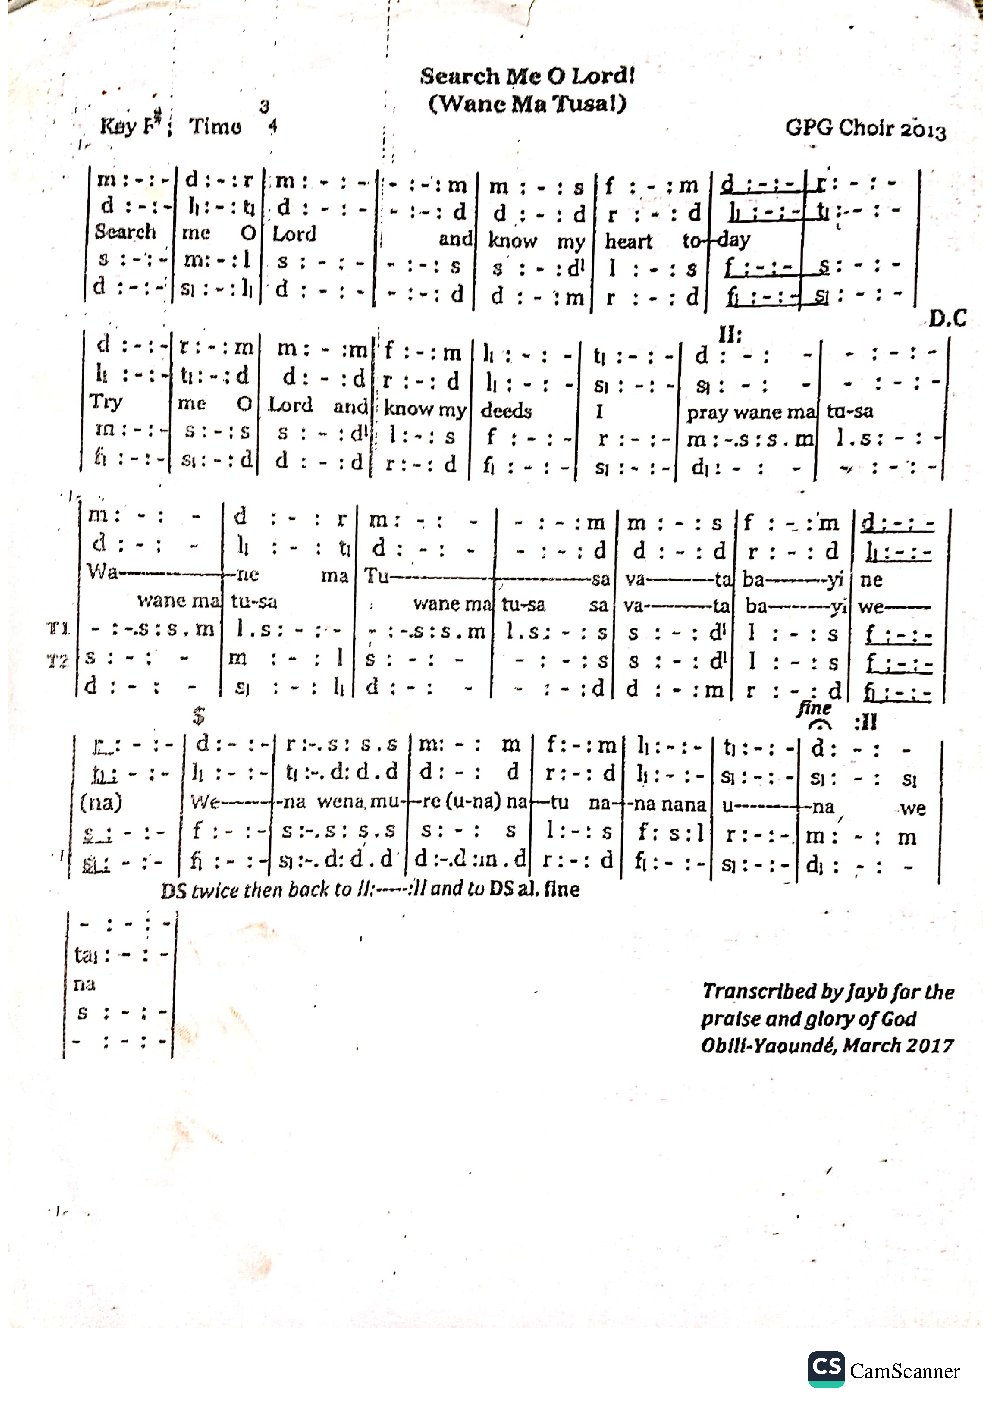 Search Me O Lord!
(Wane Ma Tusa!)
Key F#; Time 3/4
GPG Choir 2013
|m : - : - |d : - : r |m : - : - |- : - : m |m : - : s |f : - : m |d : - : - |r : - : - |
|d : - : - |l₁ : - : t₁ |d : - : - |- : - : d |d : - : d |r : - : d |l₁ : - : - |t₁ : - : - |
Search me O Lord and know my heart to-day
|s : - : - |m : - : l |s : - : - |- : - : s |s : - : d' |l : - : s |f : - : - |s : - : - |
|d : - : - |s₁ : - : l₁ |d : - : - |- : - : d |d : - : m |r : - : d |f₁ : - : - |s₁ : - : - |
D.C
II:
|d : - : - |r : - : m |m : - : m |f : - : m |l₁ : - : - |t₁ : - : - |d : - : - |- : - : - |
|l₁ : - : - |t₁ : - : d |d : - : d |r : - : d |l₁ : - : - |s₁ : - : - |s₁ : - : - |- : - : - |
Try me O Lord and know my deeds I pray wane ma tu-sa
|m : - : - |s : - : s |s : - : d' |l : - : s |f : - : - |r : - : - |m : -.s : s.m |l.s : - : - |
|f₁ : - : - |s₁ : - : d |d : - : d |r : - : d |f₁ : - : - |s₁ : - : - |d₁ : - : - |- : - : - |
|m : - : - |d : - : r |m : - : - |- : - : m |m : - : s |f : - : m |d : - : - |
|d : - : - |l₁ : - : t₁ |d : - : - |- : - : d |d : - : d |r : - : d |l₁ : - : - |
Wa-----ne ma Tu-----sa va-----ta ba-----yi ne
wane ma tu-sa wane ma tu-sa sa va-----ta ba-----yi we----
T1 |- : -.s : s.m |l.s : - : - |- : -.s : s.m |l.s : - : s |s : - : d' |l : - : s |f : - : - |
T2 |s : - : - |m : - : l |s : - : - |- : - : s |s : - : d' |l : - : s |f : - : - |
|d : - : - |s₁ : - : l₁ |d : - : - |- : - : d |d : - : m |r : - : d |f₁ : - : - |
$ fine :II
|r : - : - |d : - : - |r : -.s : s.s |m : - : m |f : - : m |l₁ : - : - |t₁ : - : - |d : - : - |
|t₁ : - : - |l₁ : - : - |t₁ : -.d : d.d |d : - : d |r : - : d |l₁ : - : - |s₁ : - : - |s₁ : - : s₁ |
(na) We-----na wena, mu--re (u-na) na--tu na--na nana u-----na, we
|s : - : - |f : - : - |s : -.s : s.s |s : - : s |l : - : s |f : s : l |r : - : - |m : - : m |
|s₁ : - : - |f₁ : - : - |s₁ : -.d : d.d |d : -.d : m.d |r : - : d |f₁ : - : - |s₁ : - : - |d₁ : - : - |
DS twice then back to II:----:II and to DS al. fine
|- : - : - |
|ta₁ : - : - |
na
|s : - : - |
|- : - : - |
Transcribed by Jayb for the
praise and glory of God
Obili-Yaoundé, March 2017
CS CamScanner